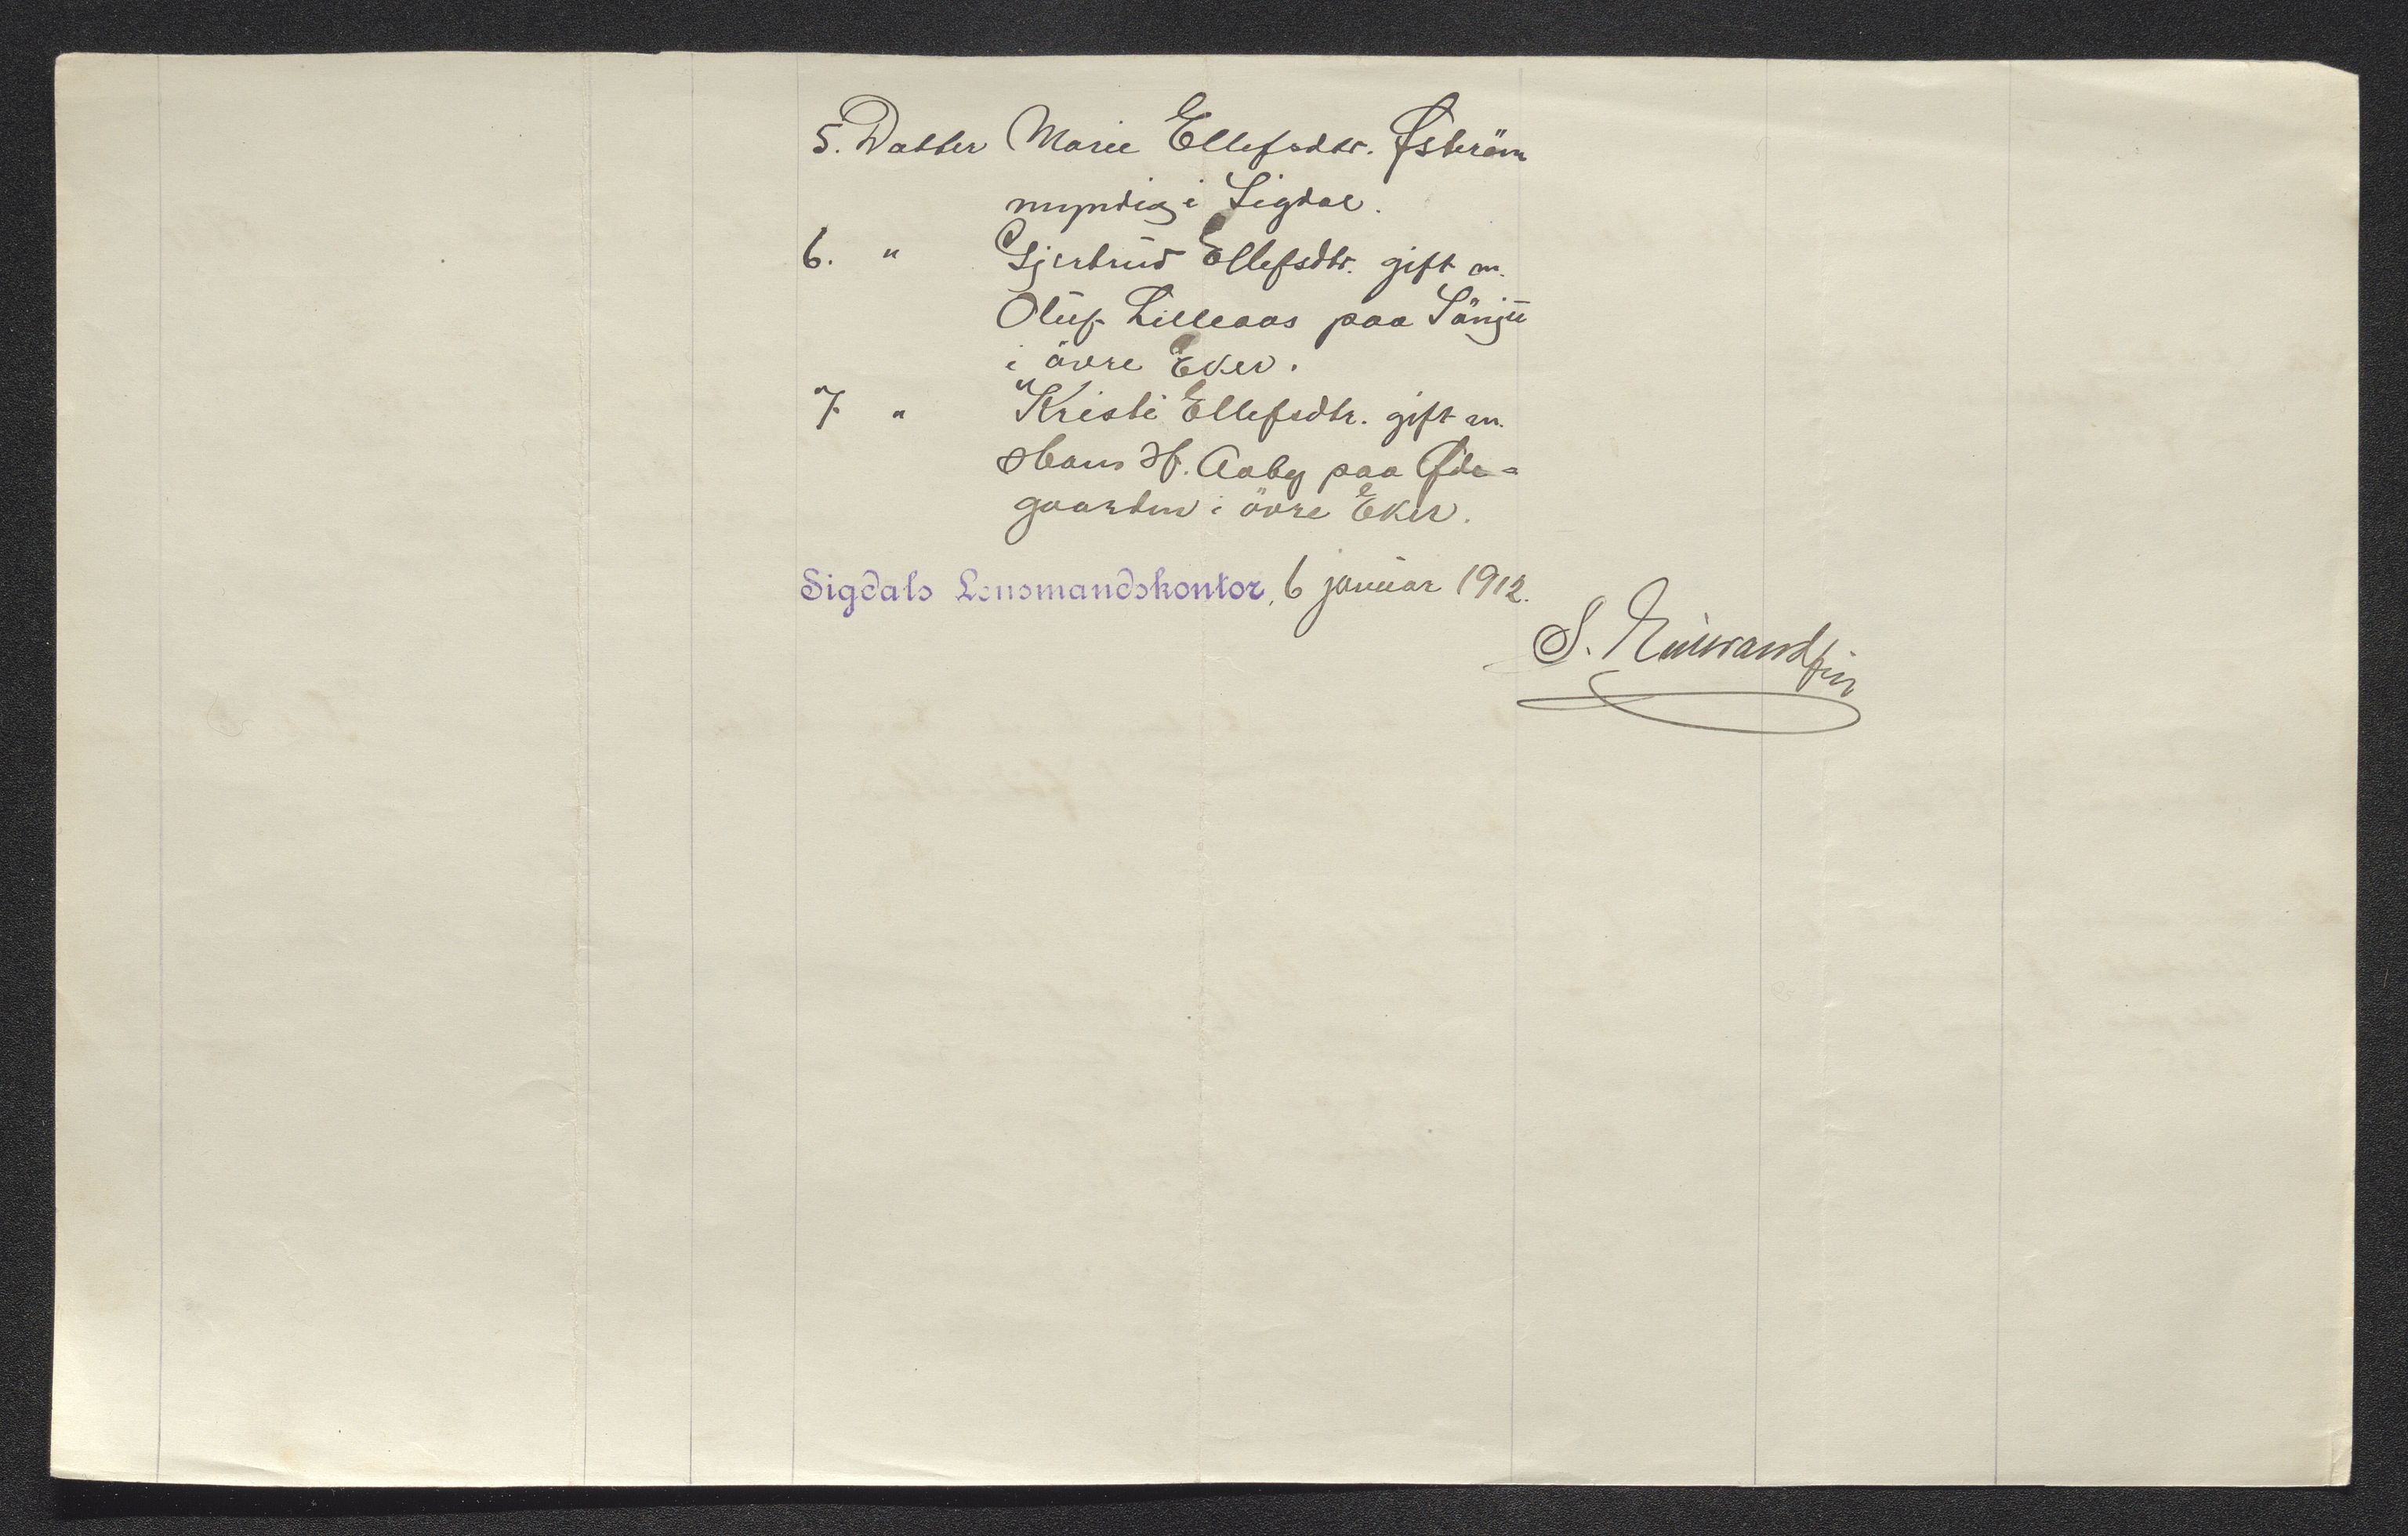 5. Datter Marie Ellefsdtr. Østeröm
myndig i Sigdal.
6. " Gjertrud Ellefsdtr. gift m.
Oluf Lilleaas paa
i övre Eker.
7. " Kristi Ellefsdtr. gift m.
Hans H. Aaby paa Øde-
gaarden i övre Eker.
Sigdals Lensmandskontor, 6 januar 1912.
S.